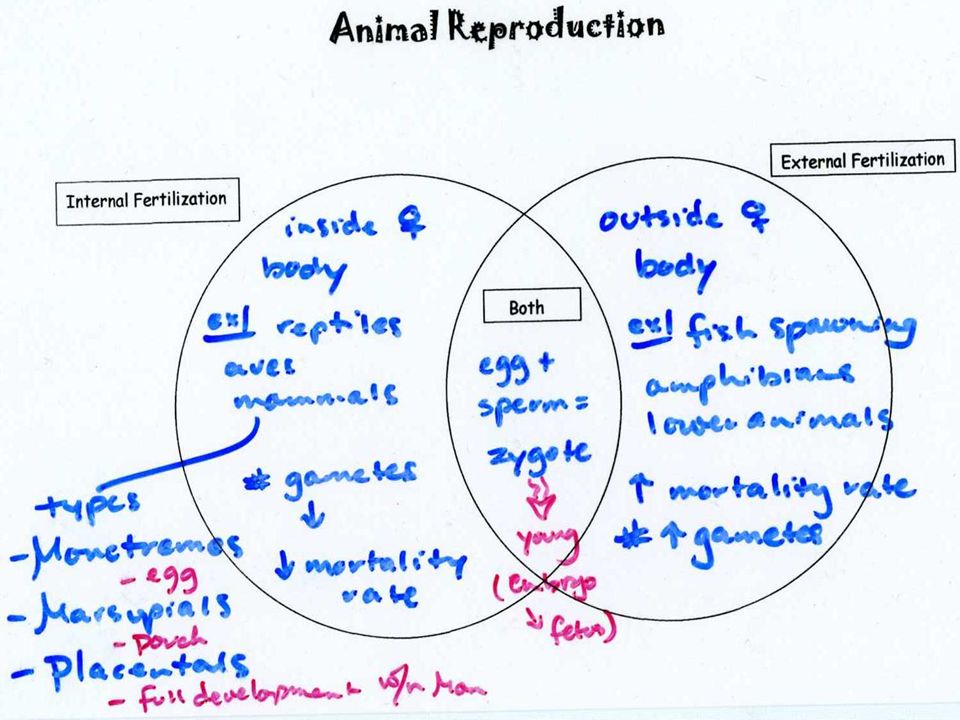 Animal Reproduction
Internal Fertilization
inside ♀
body
ex/ reptiles
aves
mammals
# gametes
↓
↓ mortality
rate
types
- Monetremes
- egg
- Marsupials
- Pouch
- Placentals
- full development w/n Mom
Both
egg +
sperm =
zygote
young
(embryo
↓ fetus)
External Fertilization
outside ♀
body
ex/ fish spawning
amphibians
lower animals
↑ mortality rate
# ↑ gametes